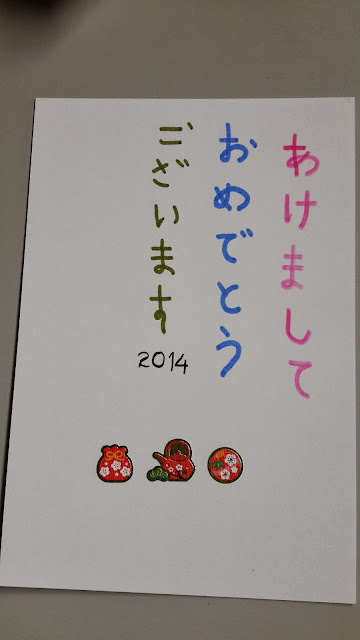 あけまして
おめでとう
ございます
2014